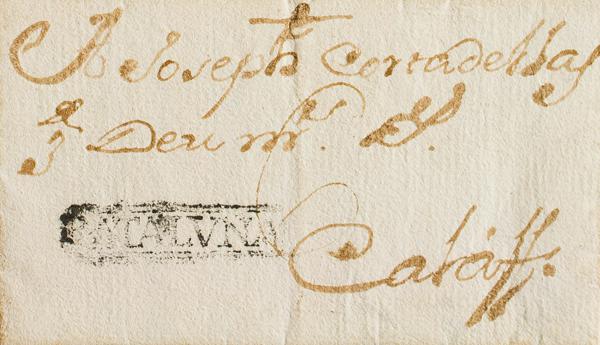 Joseph Cortadellas
q Deu m.ˢ a.ˢ
CATALVNA
Calaff.